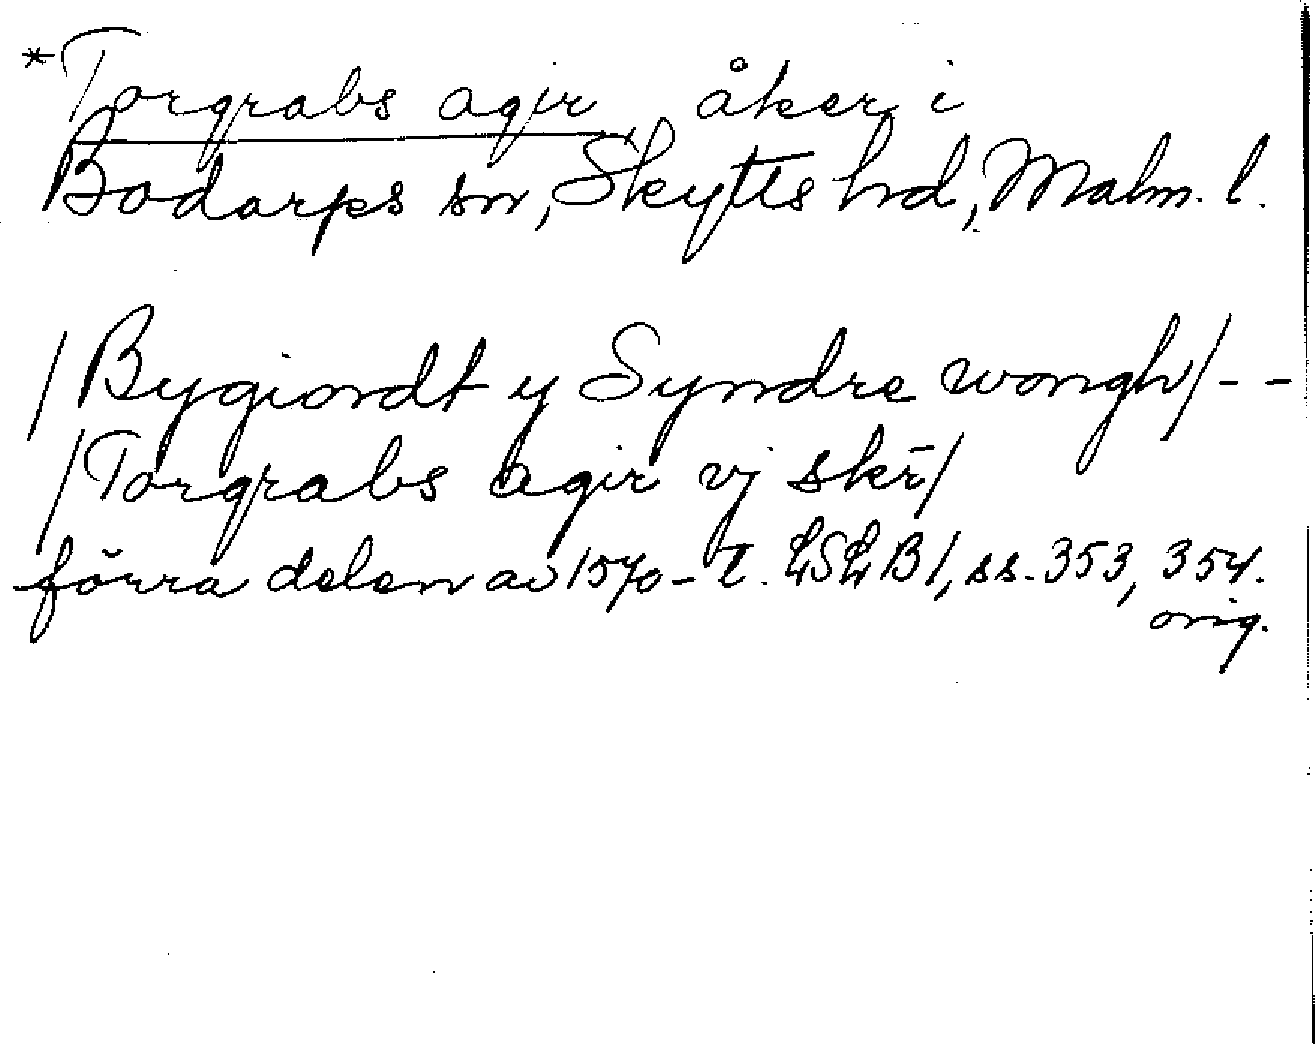 *Torgrabs agir, åker i
Bodarps sn, Skytts hd, Malm. l.
/Bygiordt y Syndre wongh/- -
/Torgrabs agir vj skr̄/
förra delen av 1570-t. LSLB1, ss. 353, 354.
orig.